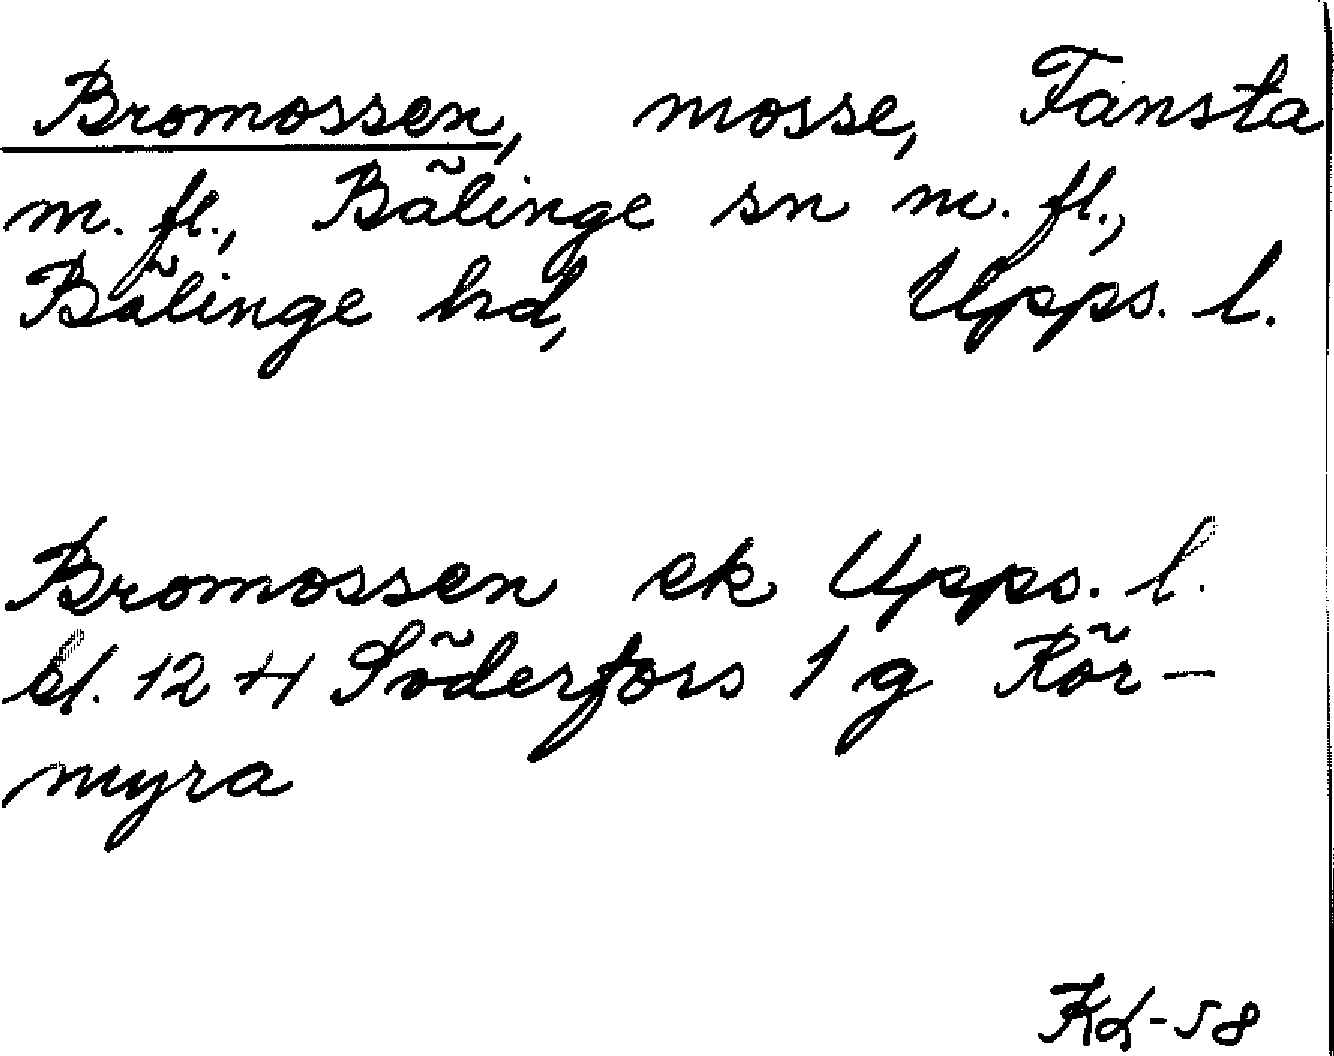 Bromossen, mosse, Fansta
m. fl., Bälinge sn m. fl.,
Bälinge hd, Upps. l.
Bromossen ek Upps. l.
bl. 12 H Söderfors 1 g Kör-
myra
Kd-58